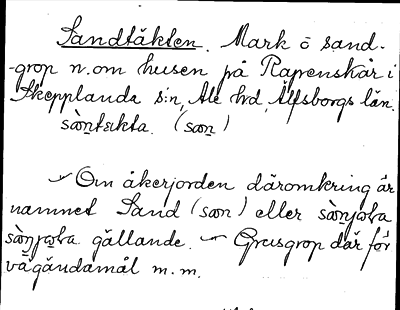 Sandtäkten. Mark o sand-
-grop n. om husen på Räpenskår i
Skepplanda s:n, Ale hd, Älfsborgs län.
sàntækta. (sæn)
Om åkerjorden däromkring är
namnet Sand (sæn) eller
gällande. Grusgrop där för
vägändamål m.m.